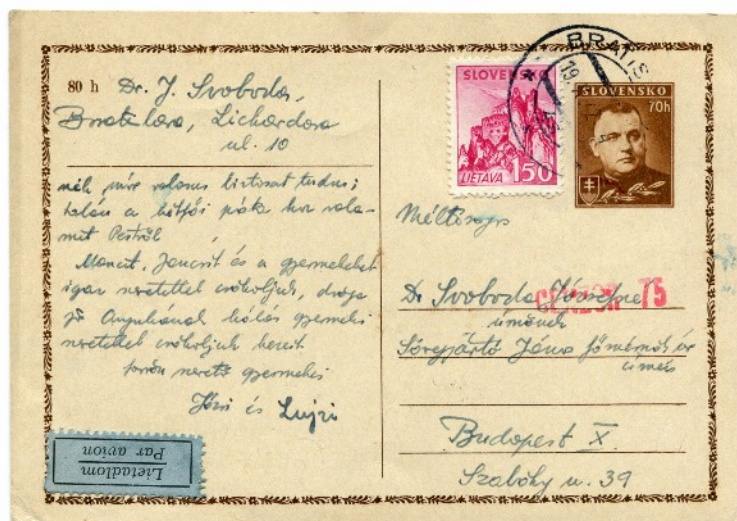 80 h Dr. J. Svoboda,
Bratislava, Lichardova
ul. 10
tudni
talán a hétfői
mit Pestről
Mancit, Jencsit és a gyermekeket
igaz szeretettel csókoljuk, drága
jó Anyukának hálás gyermeki
szeretettel csókoljuk kezeit
forrón szerető gyermekei
Józsi és Lujzi
Lietadlom
Par avion
SLOVENSKO
LIETAVA 150
BRATIS
SLOVENSKO
70h
Méltóságos
Dr Svoboda Józsefné
CENZOR 75
úrnőnek
János főmérnök úr
címén
Budapest X.
Szabóky u. 39